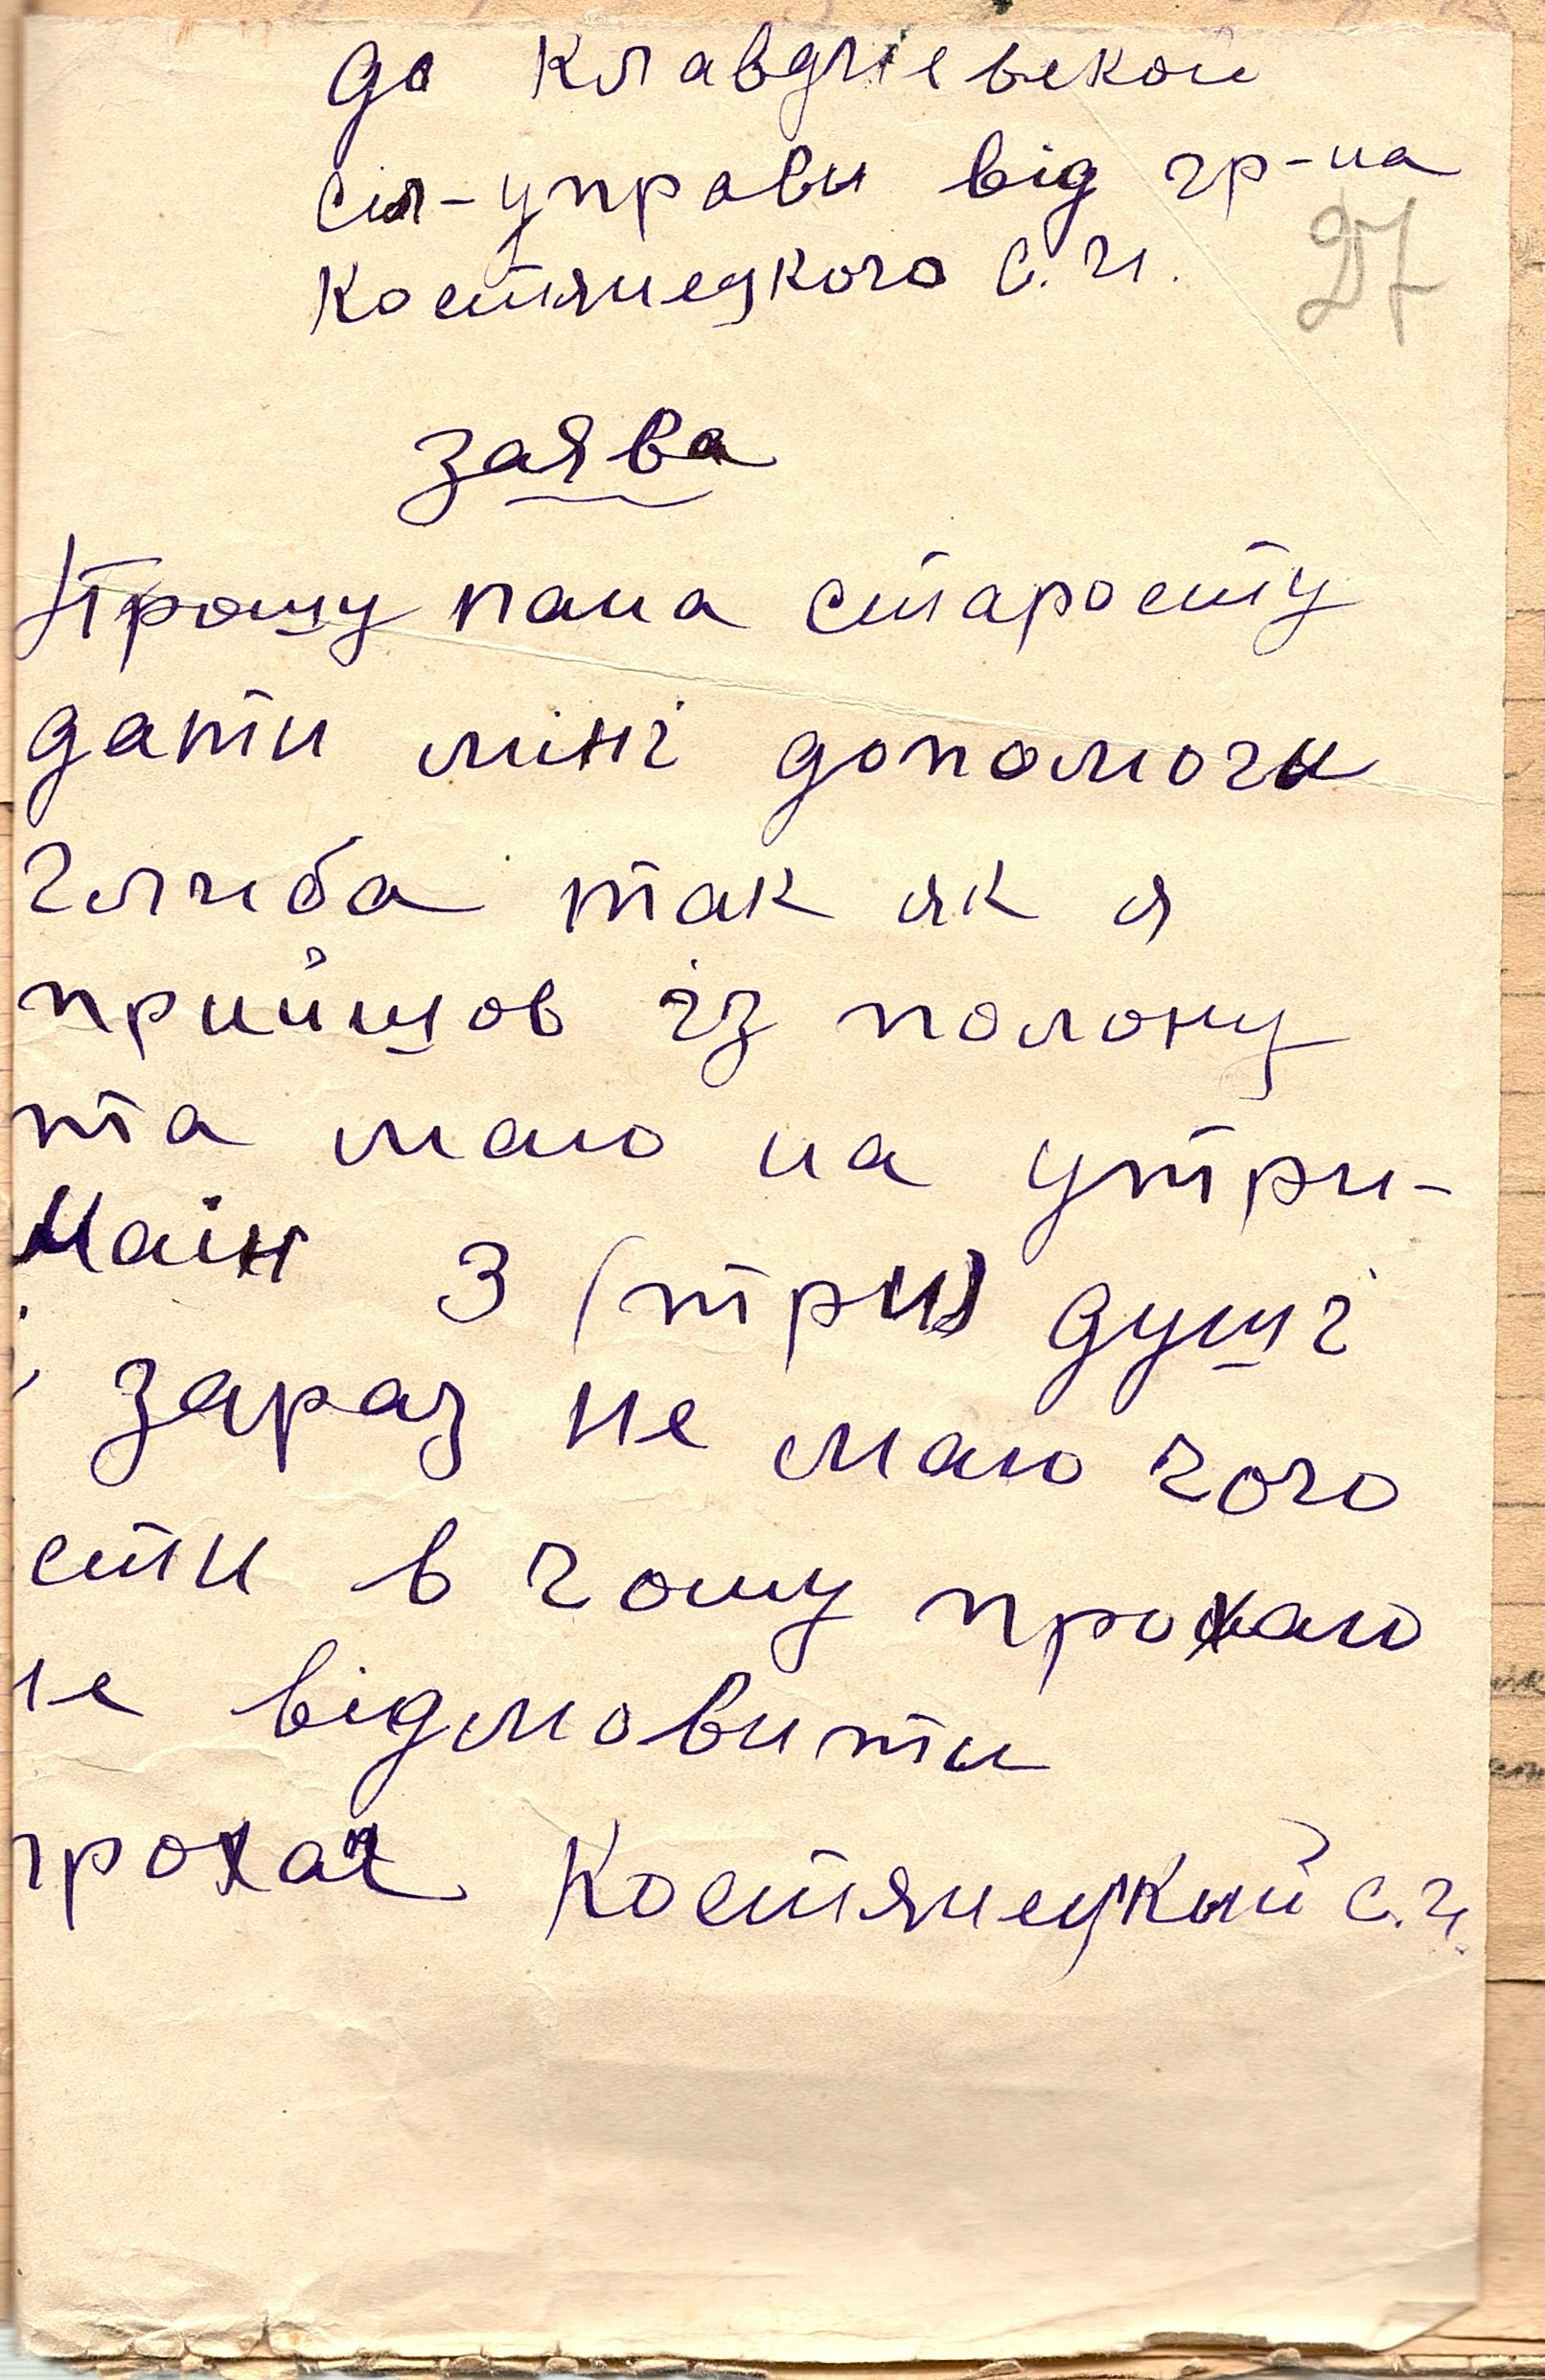 до Клавдіевской
сіл-управи від гр-на
Костянецкого С. И.
27
заява
Прошу пана старосту
дати міні допомоги
хліба так як я
прийшов із полону
та маю на утри-
маін 3 (три) душі
і зараз не маю чого
сти в чому прохаю
не відмовити
прохач Костянецкий С. И.